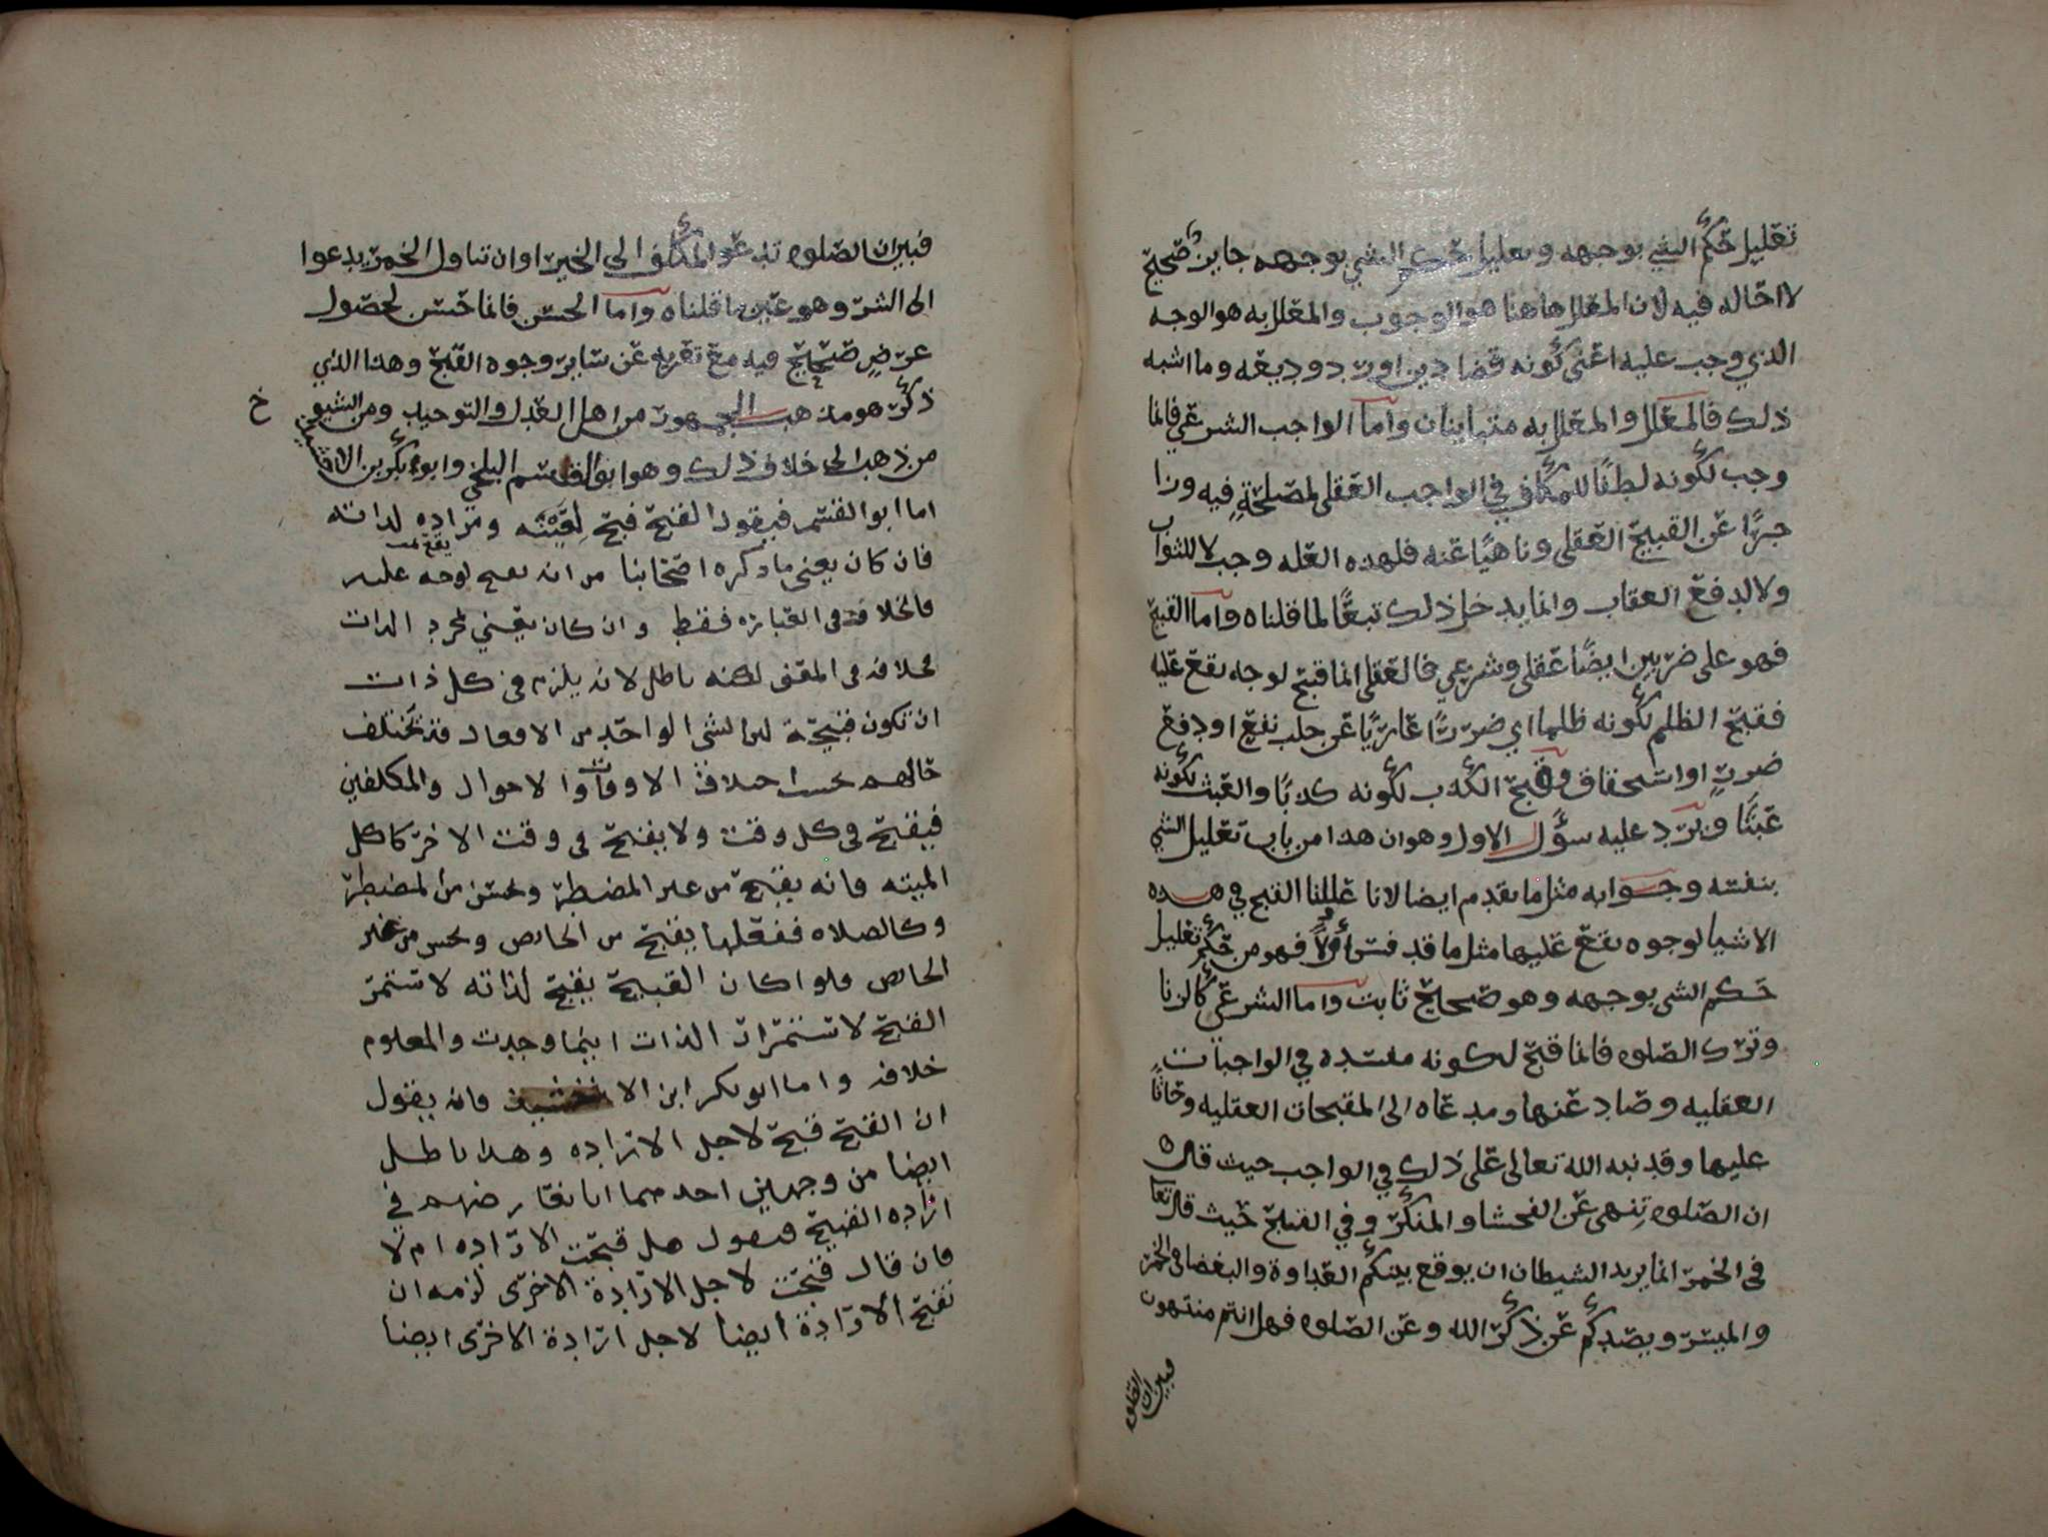 تعليل حكم الشي بوجهه وتعليل حكم الشي بوجهه جايز صحيح
لا احاله فيه لان المعلل هاهنا هو الوجوب والمعلل به هو الوجه
الذي وجب عليه اعني كونه قضا دين او رد وديعه وما اشبه
ذلك فالمعلل والمعلل به متباينان واما الواجب الشرعي فانما
وجب لكونه لطفًا للمكلف في الواجب العقلي لمصلحةٍ فيه وزا
جرًا عن القبيح العقلي وناهيًا عنه فلهذه العله وجب لا للثواب
ولا لدفع العقاب وانما يدخل ذلك تبعًا لما قلناه واما القبيح
فهو على ضربين ايضًا عقلي وشرعي فالعقلي انما قبح لوجه يقع عليه
فقبح الظلم لكونه ظلما اي ضررًا عاريًا عن جلب نفع او دفع
ضررٍ او استحقاق وقبح الكذب لكونه كذبًا والعبث لكونه
عبثًا ويرد عليه سؤال الاول وهو ان هذا من باب تعليل الشي
بنفسه وجوابه مثل ما تقدم ايضا لانا عللنا القبح في هذه
الاشيا لوجوه تقع عليها مثل ما قد فسر أولاً فهو من حكم تعليل
حكم الشي بوجهه وهو صحيح ثابت واما الشرعي كالزنا
وترك الصلوه فانما قبح لكونه مفسده في الواجبات
العقليه وصاد عنها ومدعاه الى المقبحات العقليه وحاثًا
عليها وقد نبه الله تعالى على ذلك في الواجب حيث قال ه
ان الصلوه تنهى عن الفحشا والمنكر وفي القبيح حيث قال تعا
في الخمر انما يريد الشيطان ان يوقع بينكم العداوة والبغضا في الخمر
والميسر ويصدكم عن ذكر الله وعن الصلوه فهل انتم منتهون
فبين ان الصلوه
فبين ان الصلوه تدعوا المكلف الى الخير او ان تناول الخمر يدعوا
الى الشر وهو عين ما قلناه واما الحسن فانما حسن لحصول
غرضٍ صحيح فيه مع تعريه عن ساير وجوه القبح وهذا الذي
ذكره هو مذهب الجمهور من اهل العدل والتوحيد ومن الشيوخ
خ
من ذهب الى خلاف ذلك وهو ابو القاسم البلخي وابو بكر بن الاخشيد
اما ابو القسم فيقول القبيح قبح لعينه ومراده لذاته
فان كان يعني ما ذكره اصحابنا من انه يقبح لوجه يقع عليه
فالخلاف في العباره فقط وان كان يعني لمجرد الذات
فخلافه في المعنى لكنه باطل لانه يلزم في كل ذات
ان تكون قبيحة لان الشي الواحد من الافعال قد تختلف
حالهم بحسب اختلاف الاوقات والاحوال والمكلفين
فيقبح في كل وقت ولا يقبح في وقت الاخر كاكل
الميته فانه يقبح من غير المضطر ويحسن من المضطر
وكالصلاه ففعلها يقبح من الحايض ويحسن من غير
الحايض ولو كان القبيح يقبح لذاته لاستمر
القبح لاستمرار الذات اينما وجدت والمعلوم
خلافه واما ابو بكر ابن الاخشيد فانه يقول
ان القبيح قبح لاجل الاراده وهذا باطل
ايضا من وجهين احدهما انا نعارضهم في
اراده القبيح فنقول هل قبحت الاراده ام لا
فان قال قبحت لاجل الارادة الاخرى لزمه ان
تقبح الارادة أيضا لاجل ارادة الاخرى ايضا